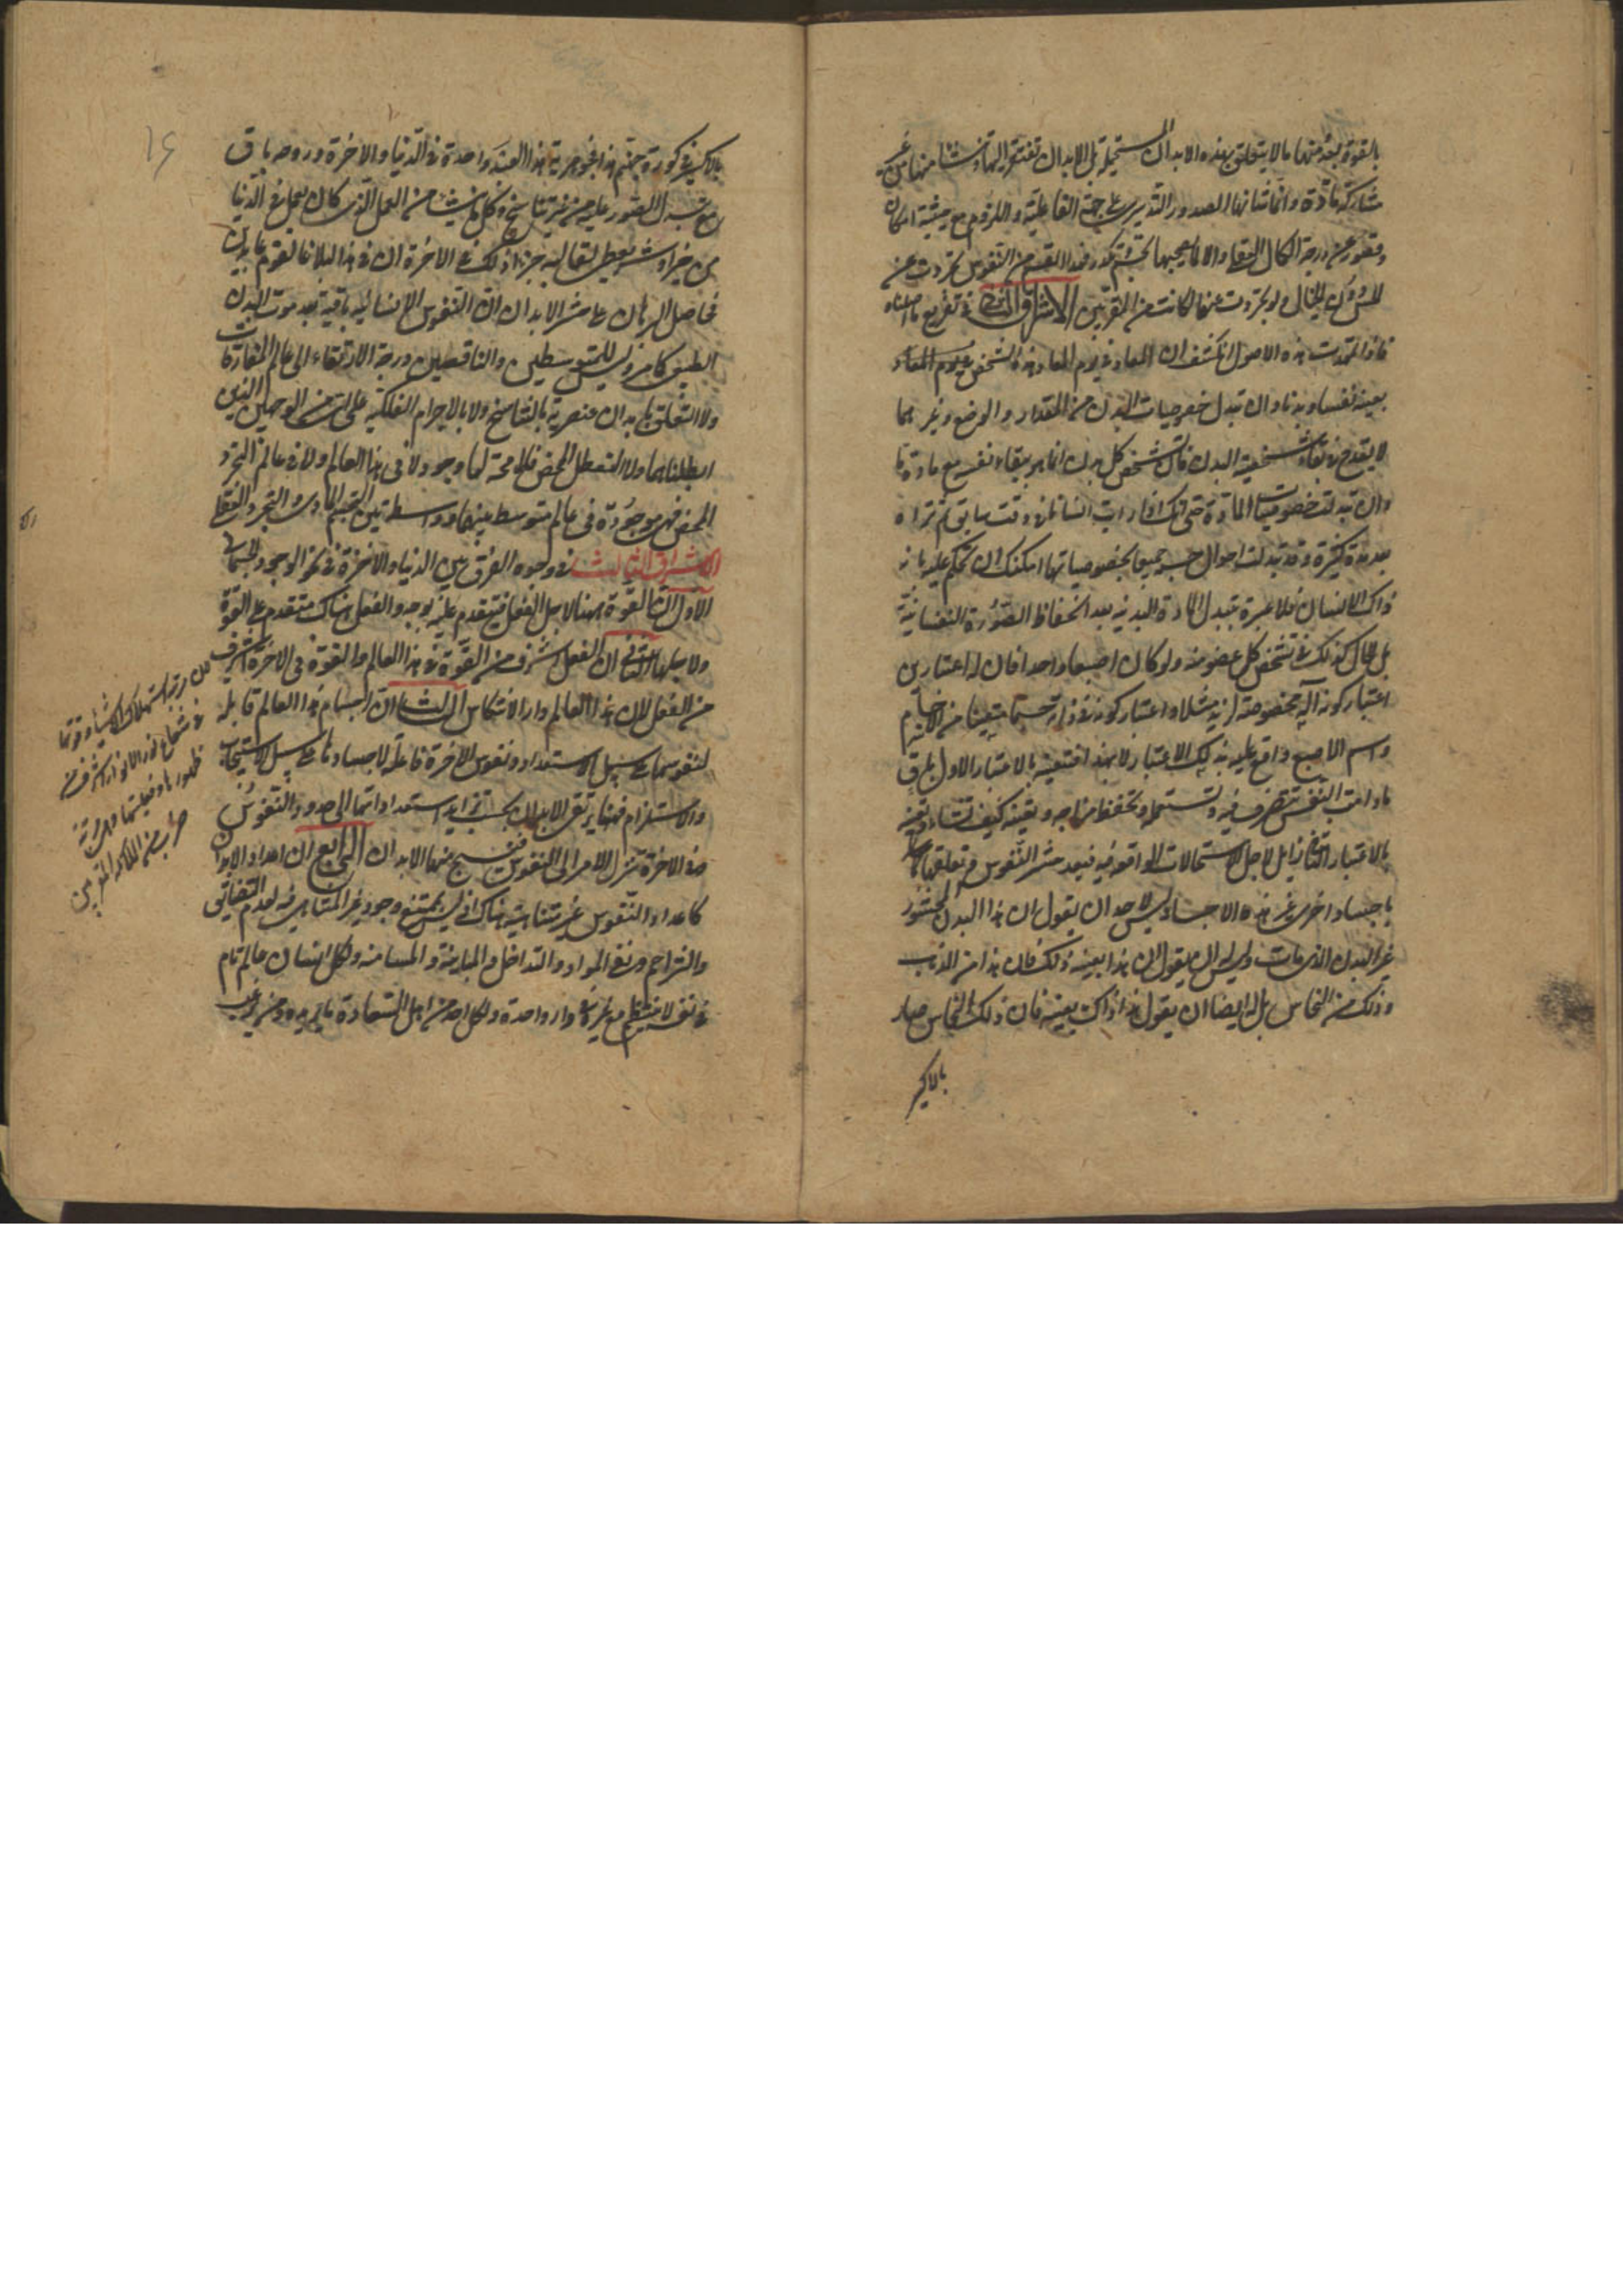 بالقوة بعد منها ما لا يتعلق بهذه الابدان المستحيلة بل الابدان تفتقر اليها وتنشأ منها من غير
مشاركة مادة وانما شانها الصدور التدبيرى على جهة الفاعلية واللزوم مع حيثية امكان
وقصور عن درجة الكمال العقلى والا لما يصحبها تجسم وتكدر فهذا القسم من النفوس تجردت عن
الحس دون الخيال ولو تجردت عنهما لكانت من المقربين الاشراق الثانى فى تفريع ما اصلناه
فاذا تمهدت هذه الاصول انكشف ان المعاد فى يوم المعاد هذا الشخص
بعينه نفسا وبدنا وان تبدل خصوصيات البدن من المقدار والوضع وغيرهما
لا يقدح فى بقاء شخصية البدن فان تشخص كل بدن انما هو ببقاء نفسه مع مادة ما
وان تبدلت خصوصيات المادة حتى انك اذا رايت انسانا فى وقت سابق ثم تراه
بعد مدة كثيرة وقد تبدلت احوال جسمه جميعا بخصوصياتها امكنك ان تحكم عليه بانه
ذاك الانسان فلا عبرة بتبدل المادة البدنية بعد انحفاظ الصورة النفسانية
بل الحال كذلك فى تشخص كل عضو منه ولو كان اصبعا واحدا فان له اعتبارين
اعتبار كونه آلة مخصوصة لزيد مثلا واعتبار كونه فى ذاته جسما متعينا من الاجسام
واسم الاصبع واقع عليه بذلك الاعتبار لا بهذا فتعينه بالاعتبار الاول باق
ما دامت النفس تتصرف فيه وتستعمله وتحفظ مزاجه وتعينه كيف تشاء وتعينه
بالاعتبار الثانى زايل لاجل الاستحالات الواقعة فيه فبعد حشر النفوس وتعلقها
باجساد اخرى غير هذه الاجساد ليس لاحد ان يقول ان هذا البدن المحشور
غير البدن الذى مات وليس له ان يقول ان هذا بعينه ذلك فان هذا من الذهب
وذلك من النحاس بل له ايضا ان يقول هذا ذاك بعينه فان ذلك النحاس صار
بالاكسير
۱۶
بالاكسير فى كورة جهنم هذا فجوهرية هذا العبد واحدة فى الدنيا والاخرة وروحه باق
مع تبدل الصور عليه من غير تناسخ وكل ما ينشأ من العمل الذى كان يعمل فى الدنيا
من خير او شر يعطى لقالبه جزاء ذلك فى الاخرة ان فى هذا لبلاغا لقوم عابدين
فحاصل البرهان على حشر الابدان ان النفوس الانسانية باقية بعد موت البدن
الطبيعى كما مر وليس للمتوسطين والناقصين درجة الارتقاء الى عالم المفارقات
ولا التعلق بابدان عنصرية بالتناسخ ولا بالاجرام الفلكية على الوجهين الذين
ابطلناهما ولا التعطل المحض فلا محة لها وجود لا فى هذا العالم ولا فى عالم التجرد
المحض فهى موجودة فى عالم متوسط بينهما وواسطة بين التجسم المادى والتجرد العقلى
الاشراق الثالث فى وجوه الفرق بين الدنيا والاخرة فى نحو الوجود الجسمانى
الاول ان القوة ههنا لاجل الفعل فتتقدم عليه بوجه والفعل هناك متقدم على القوة
ولاجلها الثانى ان الفعل اشرف من القوة فى هذا العالم والقوة فى الاخرة اشرف
من الفعل لان هذا العالم دار الانتكاس الثالث ان اجسام هذا العالم قابلة
لنفوسها على سبيل الاستعداد ونفوس الاخرة فاعلة لاجسادها على سبيل الاستيجاب
والاستلزام فههنا يرتقى الابدان بحسب تزايد استعداداتها الى حدود النفوس
وفى الاخرة يتنزل الامر الى النفوس فينسج منها الابدان الرابع ان اعداد الابدان
كاعداد النفوس غير متناهية هناك اذ ليس يمتنع وجود غير المتناهى فيه لعدم التضايق
والتزاحم ونفى المواد والتداخل والمباينة والمسامتة ولكل انسان عالم تام
فى نفسه لا ينتظم مع غيره فى دار واحدة ولكل احد من اهل السعادة ما يريده ومن يرغب